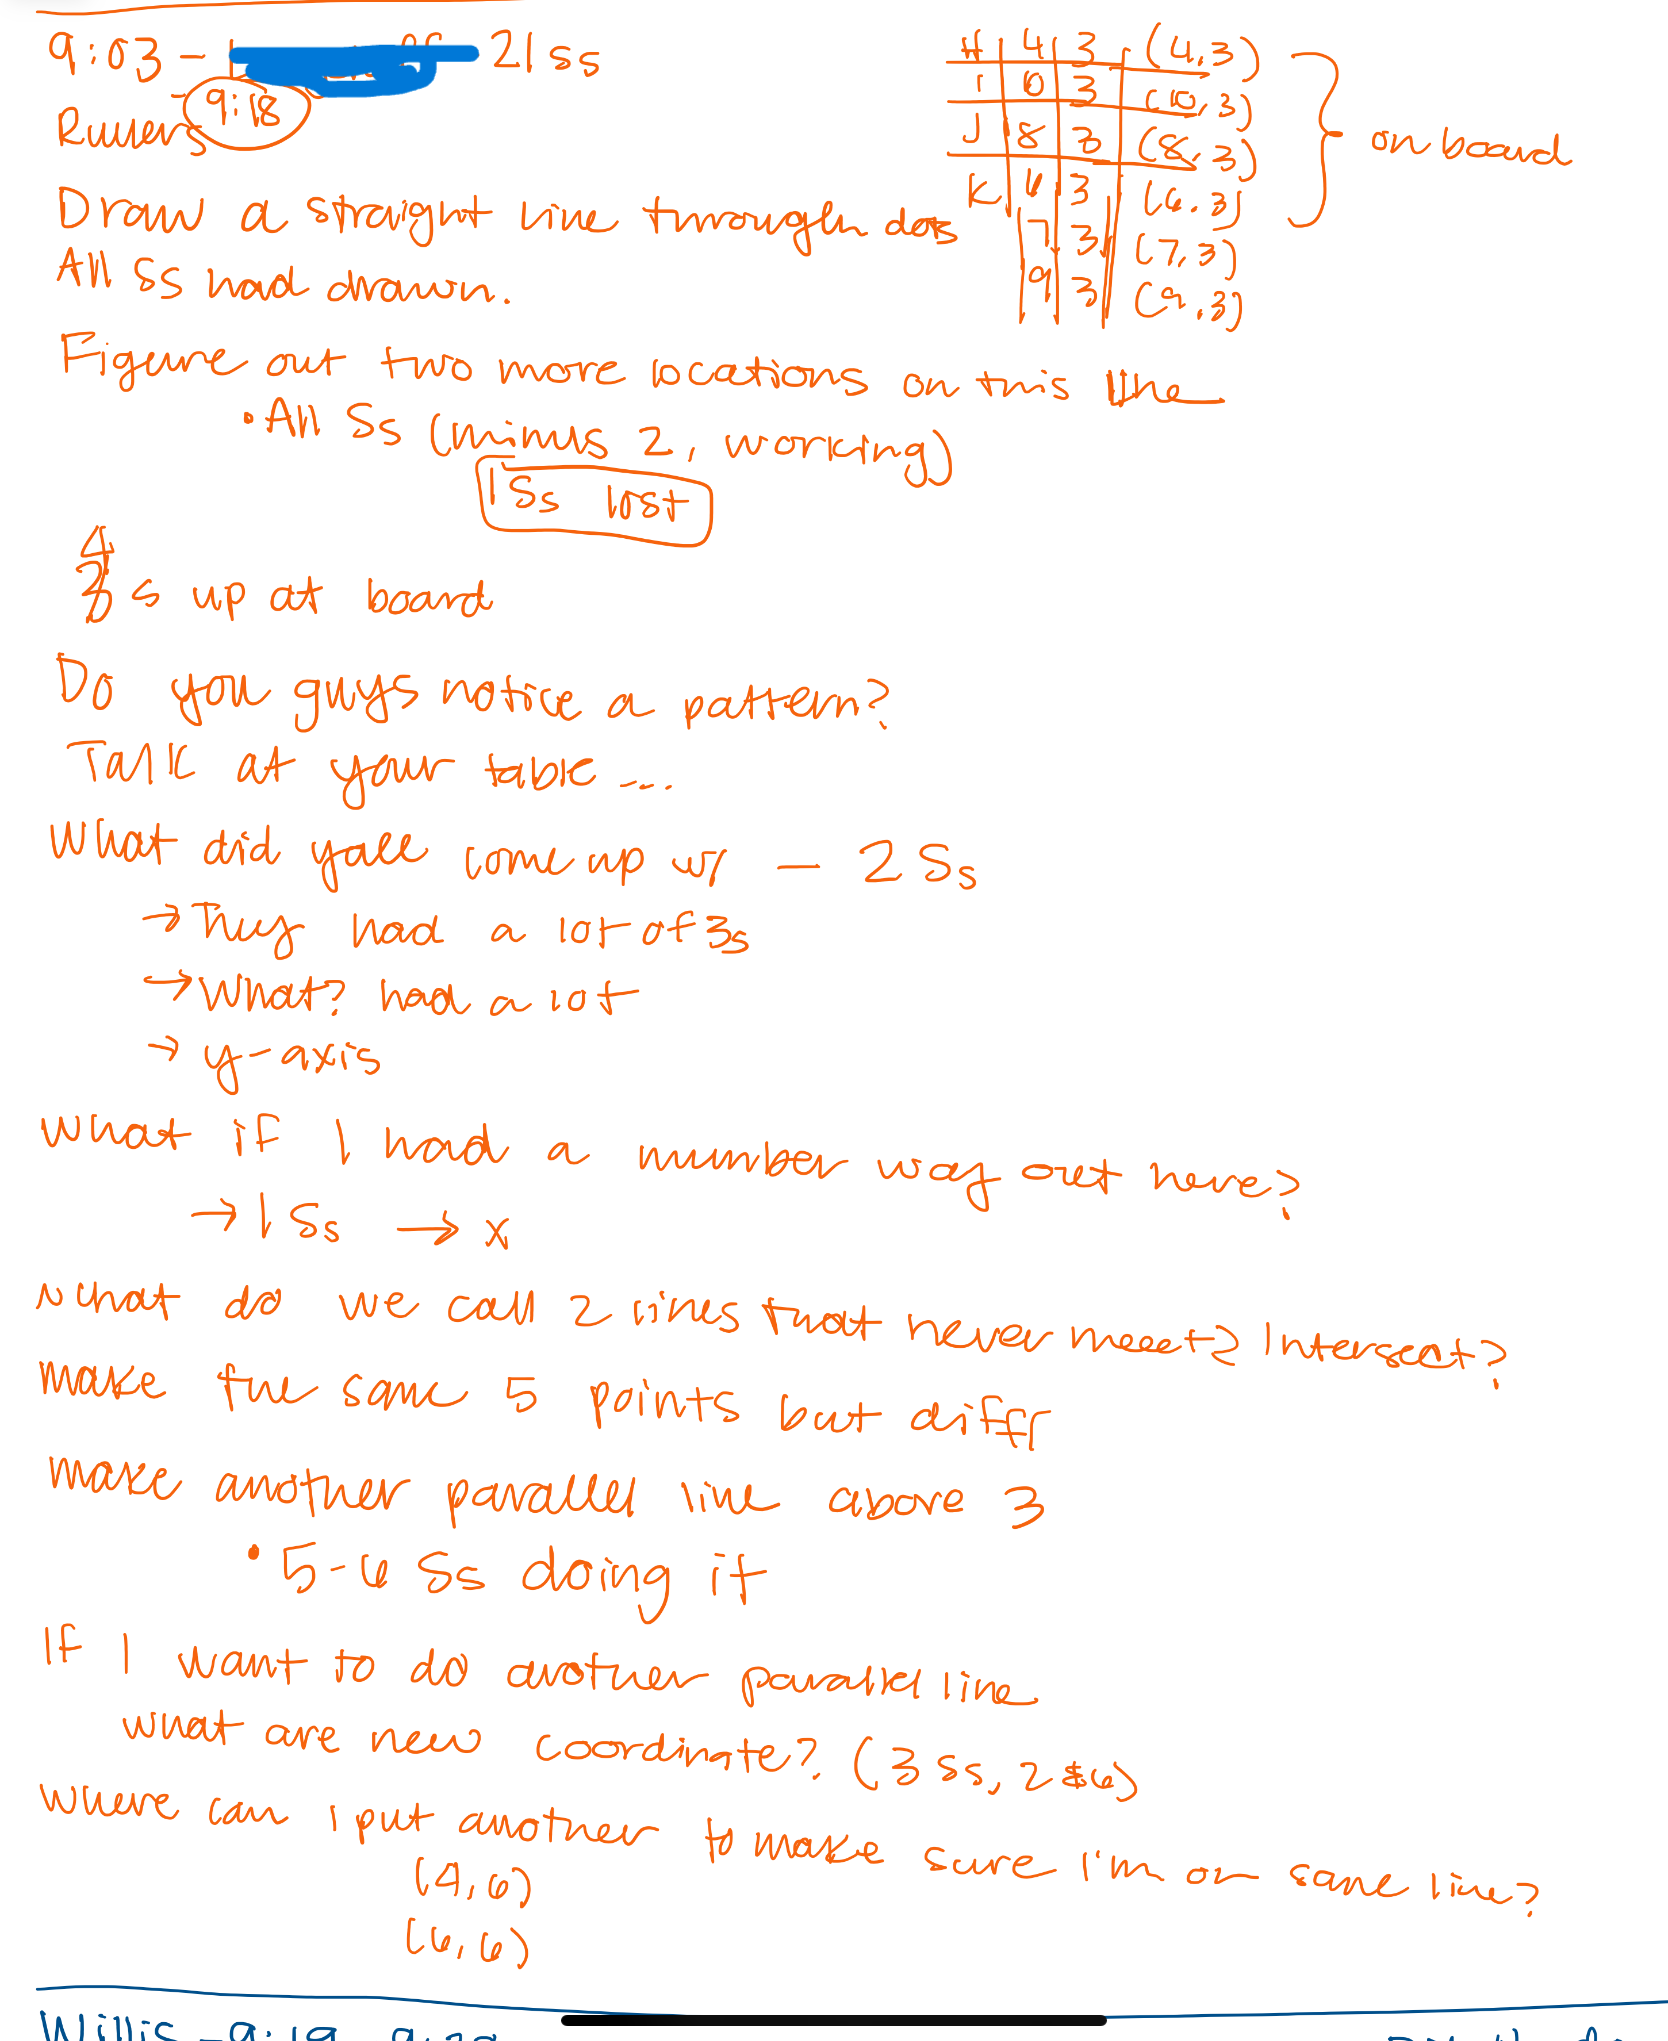 9:03 - 21 ss
- 9:18
Rulers
H 4 3 (4,3)
I 10 3 (10,3)
J 8 3 (8,3)
K 6 3 (6,3)
7 3 (7,3)
9 3 (9,3)
on board
Draw a straight line through dots
All Ss had drawn.
Figure out two more locations on this line
• All Ss (minus 2, working)
1 Ss lost
4 s up at board
Do you guys notice a pattern?
Talk at your table ...
What did yall come up w/ — 2 Ss
→ They had a lot of 3s
→ What? had a lot
→ y-axis
What if I had a number way out here?
→ 1 Ss → x
What do we call 2 lines that never meeet? Intersect?
make the same 5 points but diffr
make another parallel line above 3
• 5-6 Ss doing it
If I want to do another parallel line
what are new coordinate? (3 ss, 2 & 6)
Where can I put another to make sure I'm on same line?
(4,6)
(6,6)
Willis - 9:19